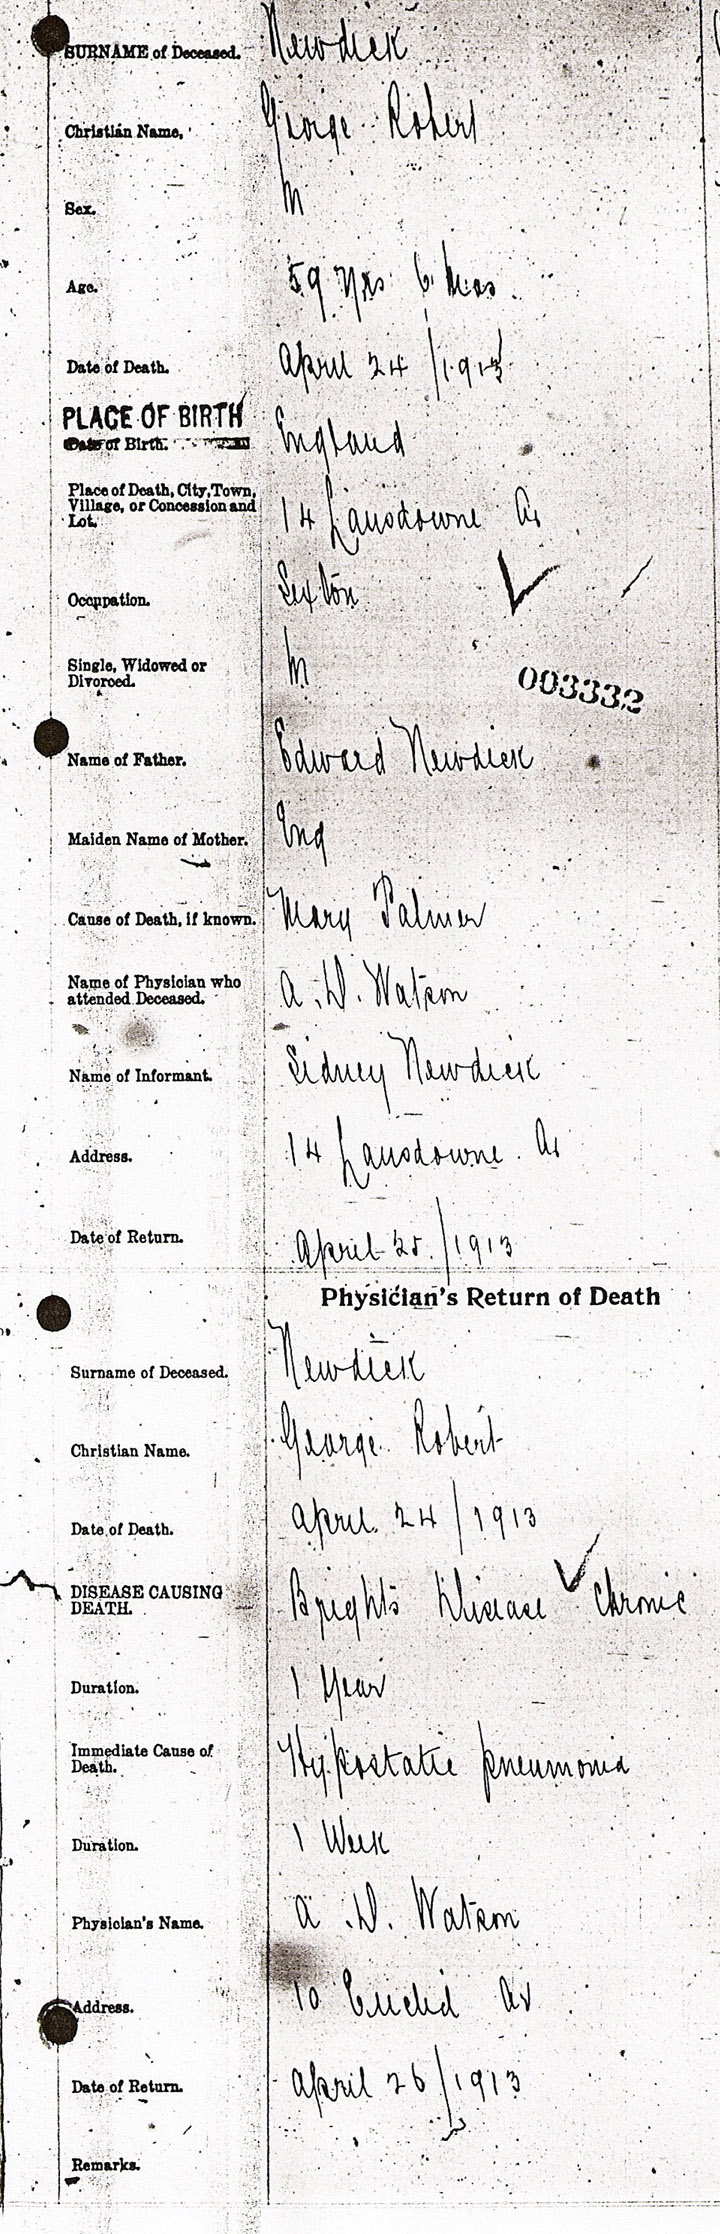 SURNAME of Deceased. Newdick
Christian Name, George Robert
Sex. M
Age. 59 Yrs 6 Mos.
Date of Death. April 24 / 1913
PLACE OF BIRTH
Date of Birth. England
Place of Death, City, Town,
Village, or Concession and
Lot. 14 Lansdowne Av
Occupation. Sexton
Single, Widowed or
Divorced. M
003332
Name of Father. Edward Newdick
Maiden Name of Mother. Eng
Cause of Death, if known. Mary Palmer
Name of Physician who
attended Deceased. A. D. Watson
Name of Informant. Sidney Newdick
Address. 14 Lansdowne Av
Date of Return. April 25. / 1913
Physician's Return of Death
Surname of Deceased. Newdick
Christian Name. George Robert
Date of Death. April 24 / 1913
DISEASE CAUSING
DEATH. Brights Disease chronic
Duration. 1 Year
Immediate Cause of
Death. Hypostatic pneumonia
Duration. 1 Week
Physician's Name. A. D. Watson
Address. 10 Euclid Av
Date of Return. April 26 / 1913
Remarks.